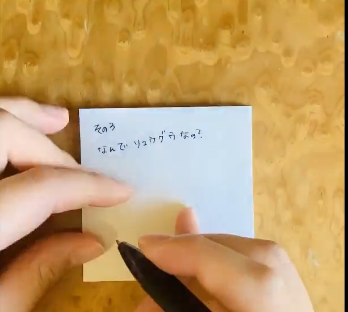 その3
なんで リュウグウ なの?